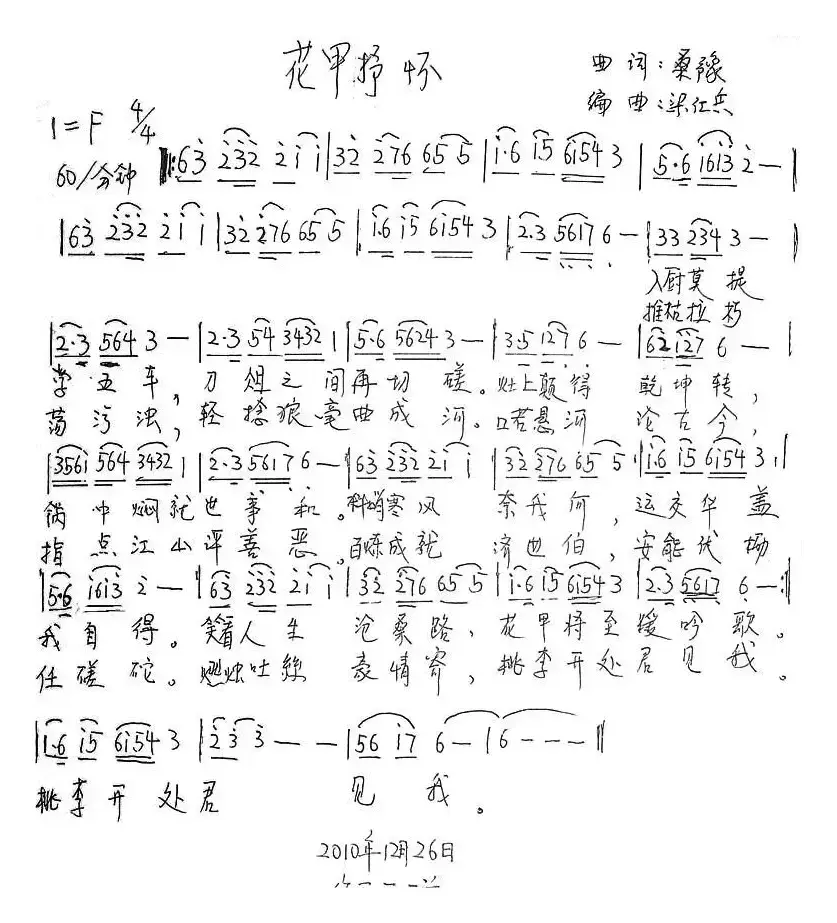 花甲抒怀
曲词:桑豫
编曲:梁仁兵
1=F 4/4
60/分钟
‖:63 232 21 1|32 276 65 5|1·6 15 6154 3|5·6 1613 2—|
|63 232 21 1|32 276 65 5|1·6 15 6154 3|2·3 5617 6—|33 234 3—|
入厨莫提
推枯拉朽
|2·3 564 3—|2·3 54 3432 1|5·6 5624 3—|3·5 127 6—|62 127 6—|
学五车,刀俎之间再切磋。灶上颠得乾坤转,
荡污浊,轻捻狼毫曲成河。口若悬河论古今,
|3561 564 3432 1|2·3 5617 6—|63 232 21 1|32 276 65 5|1·6 15 6154 3|
锅中焖就世事和。料峭寒风奈我何,运交华盖
指点江山评善恶。百炼成就济世伯,安能伏坳
|5·6 1613 2—|63 232 21 1|32 276 65 5|1·6 15 6154 3|2·3 5617 6—:‖
我自得。笑看人生沧桑路,花甲将至缓吟歌。
任磋砣。燃烛吐丝豪情寄,桃李开处君见我。
|1·6 15 6154 3|23 3———|56 17 6—|6———‖
桃李开处君见我。
2010年12月26日